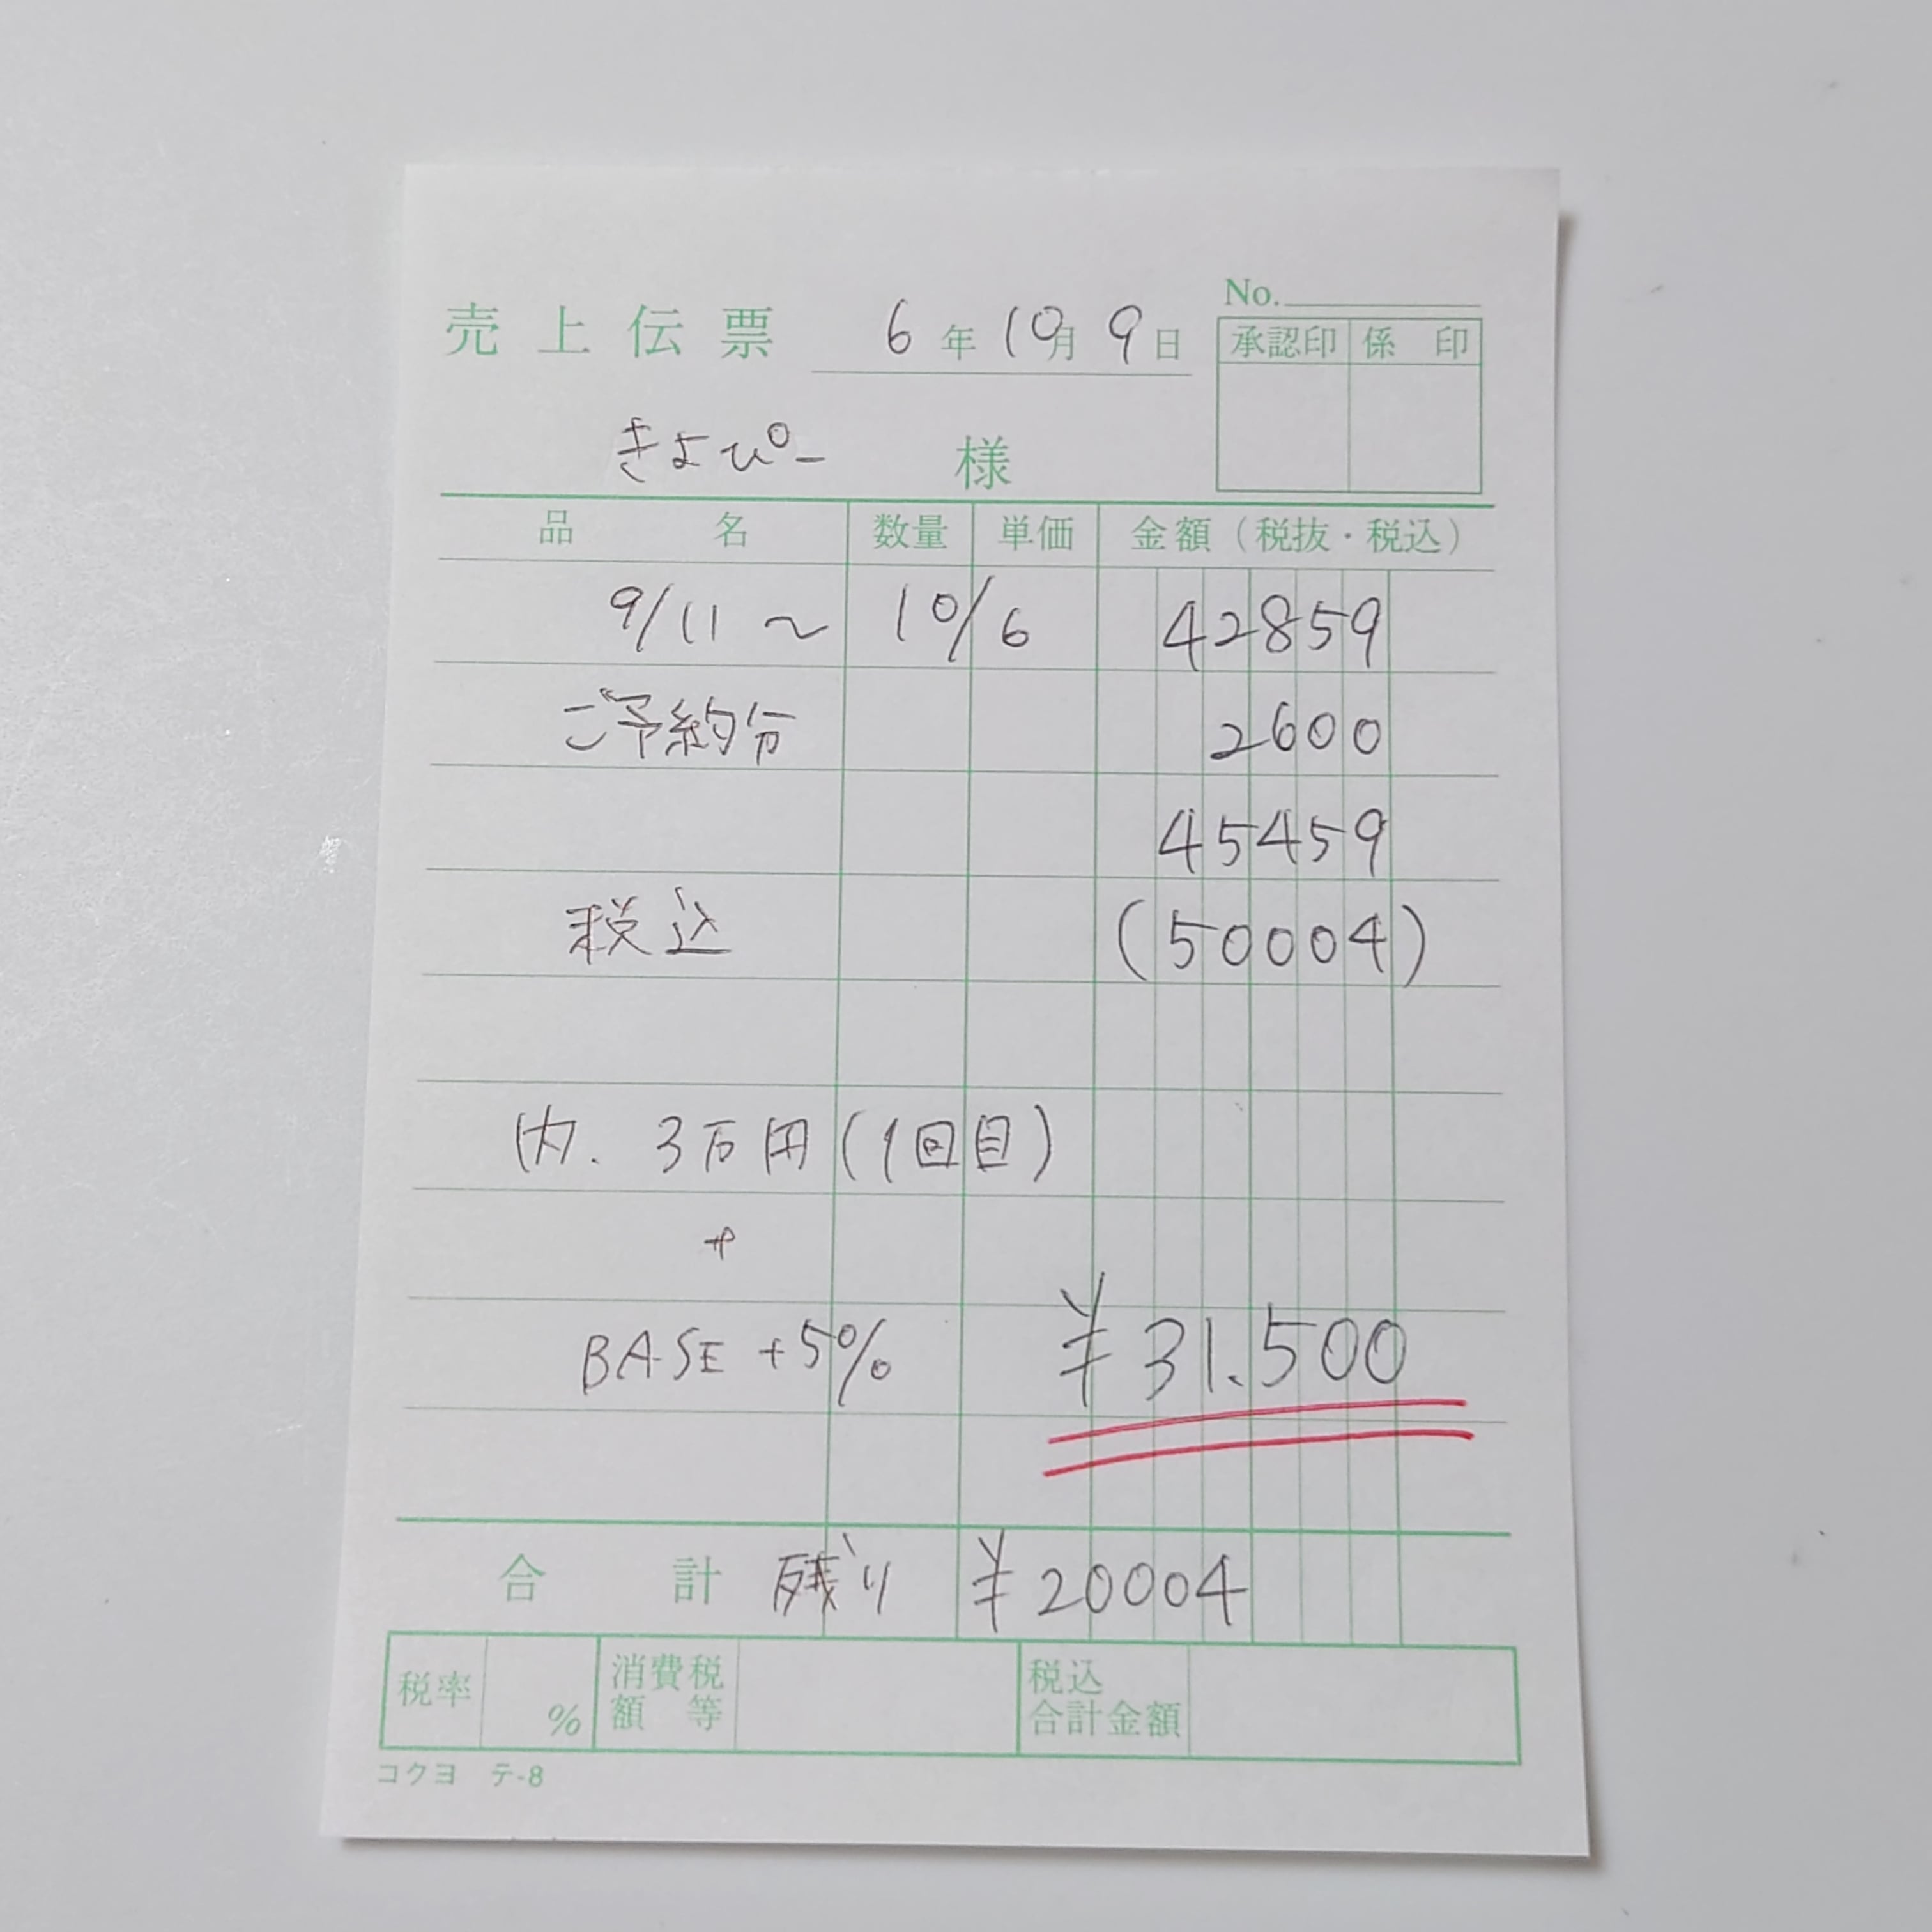 No.
売上伝票 6年10月9日
承認印 係印
きよぴー 様
品名 数量 単価 金額(税抜・税込)
9/11 〜 10/6 42859
ご予約分 2600
45459
税込 (50004)
内. 3万円(1回目)
+
BASE +5% ¥31.500
合計 残り ¥20004
税率 % 消費税額等 税込合計金額
コクヨ テ-8